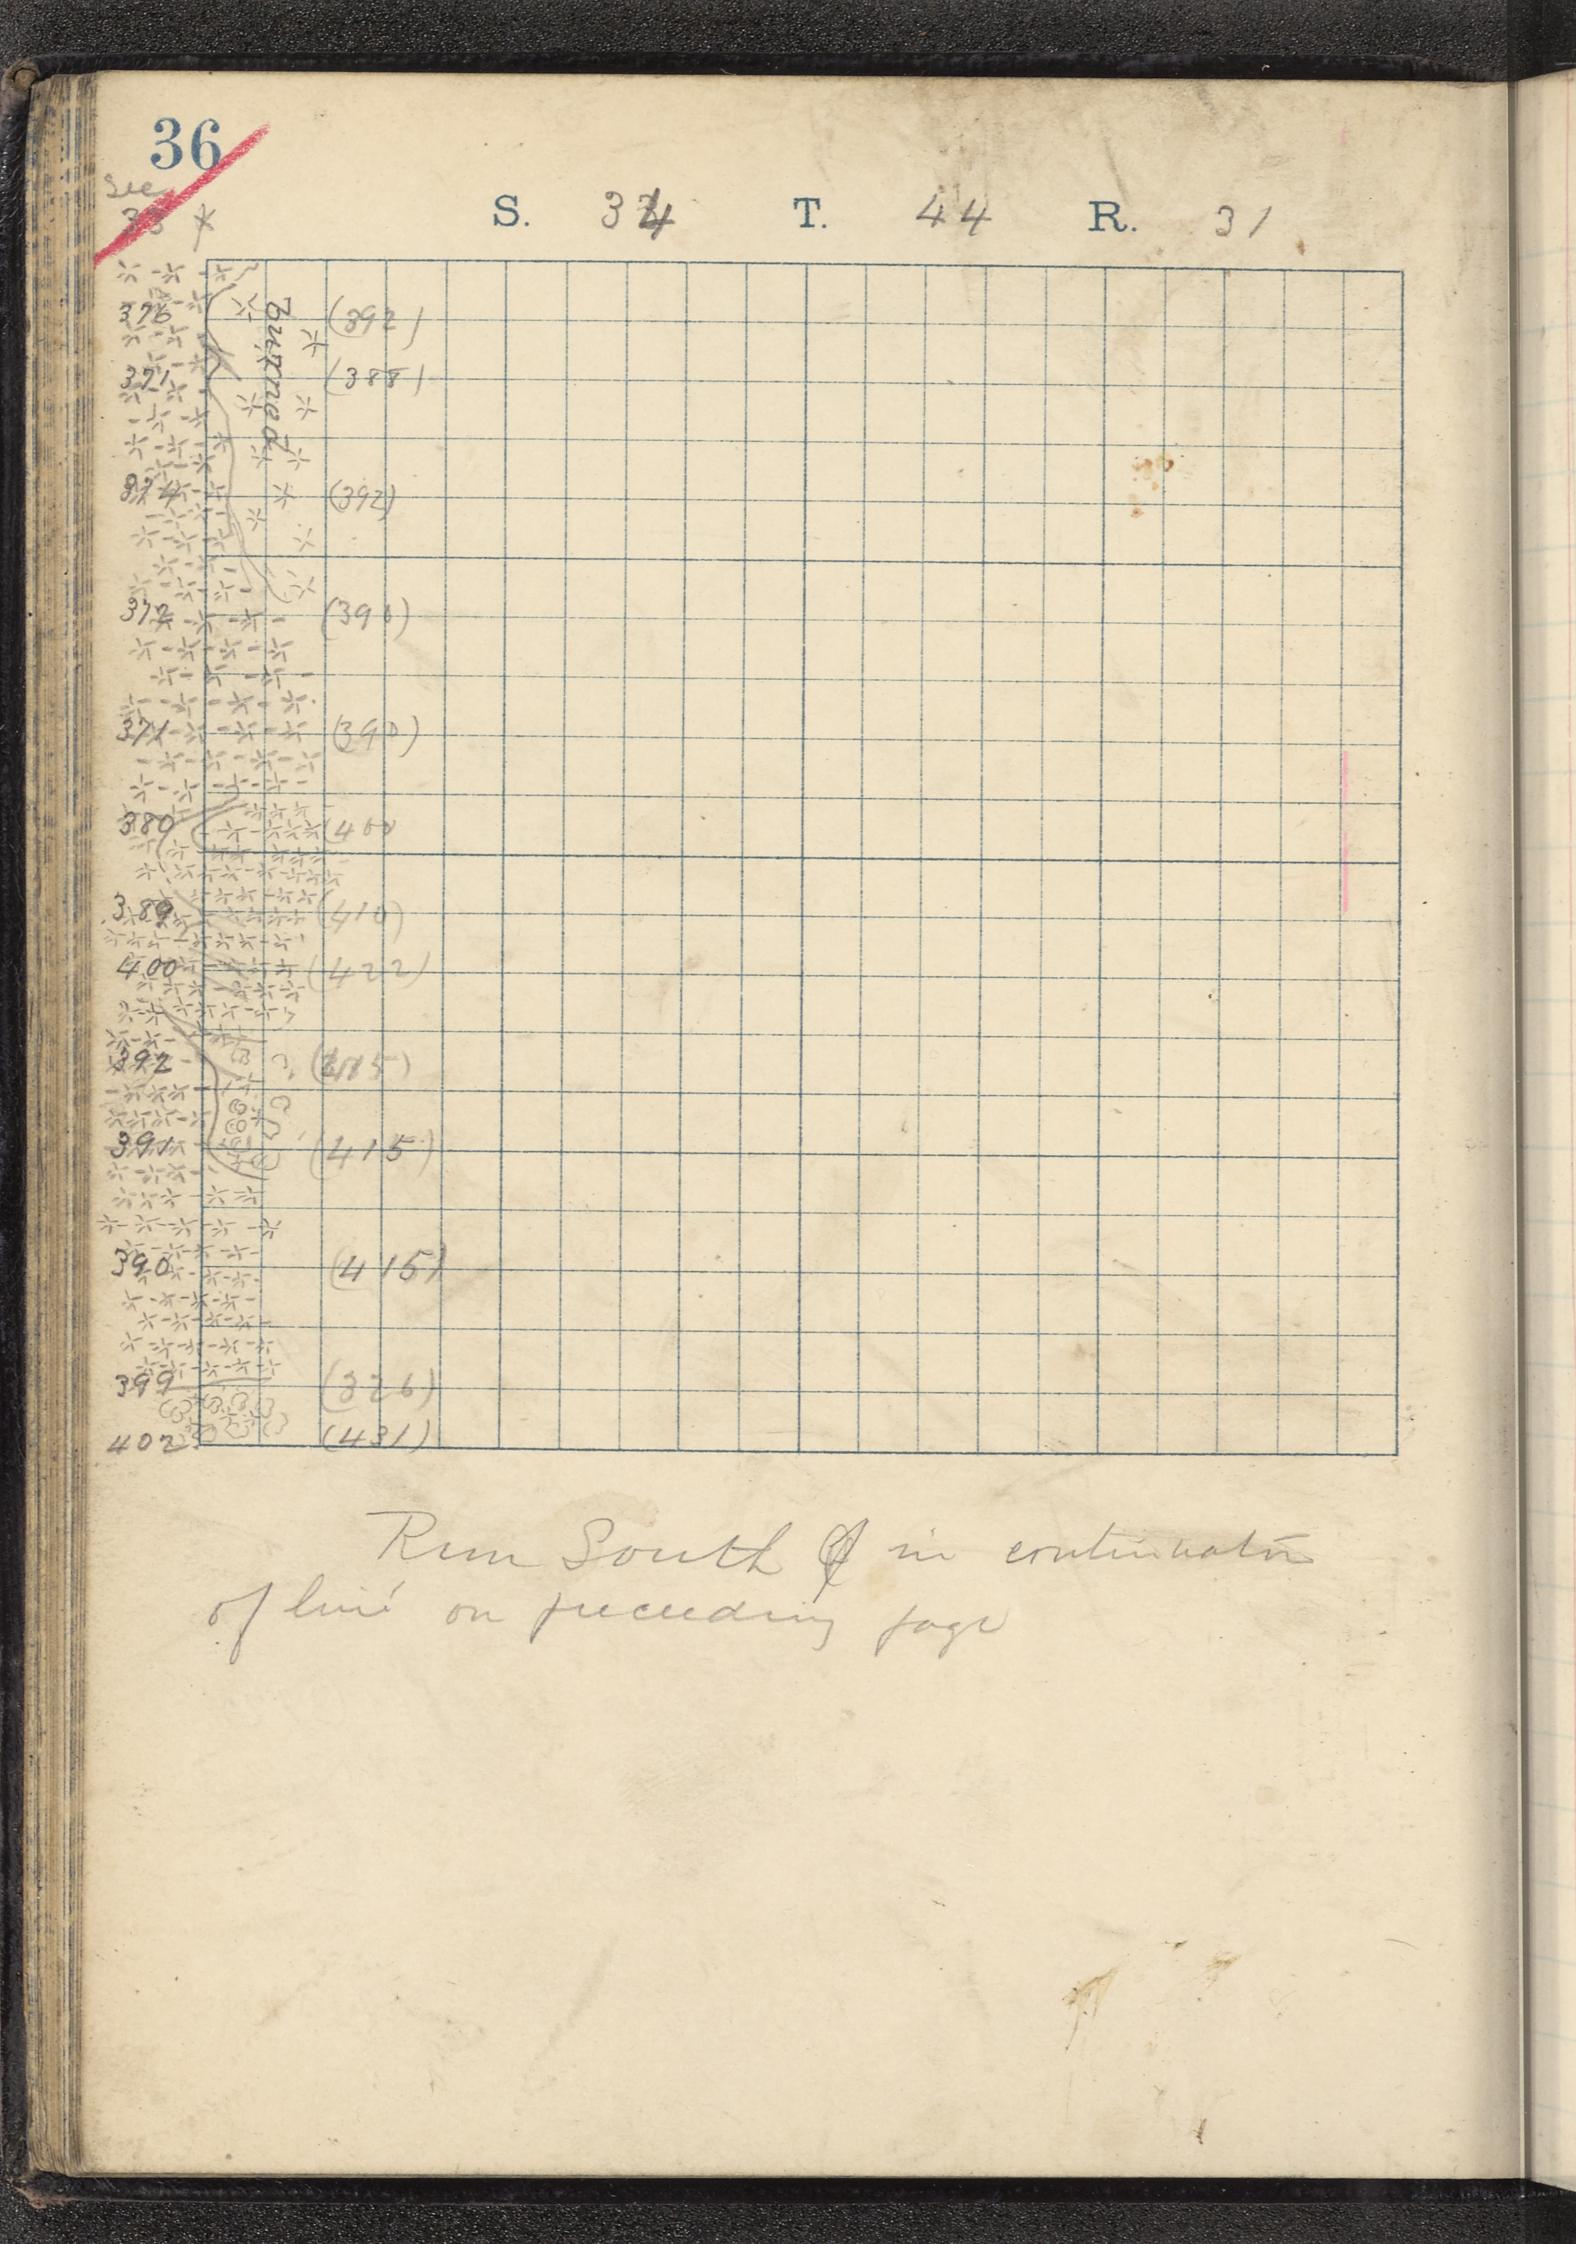 36
Sec
33
S. 34 T. 44 R. 31
376 (392)
Burned
371 (388)
374 (392)
372 (390)
371 (390)
380 (400)
389 (410)
400 (422)
392 (415)
391 (415)
390 (415)
399 (326)
402 (431)
Run South in continuation
of line on preceeding page